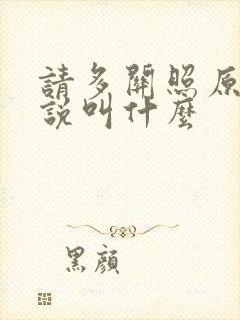 請多關照原
說叫什麼
黑顏